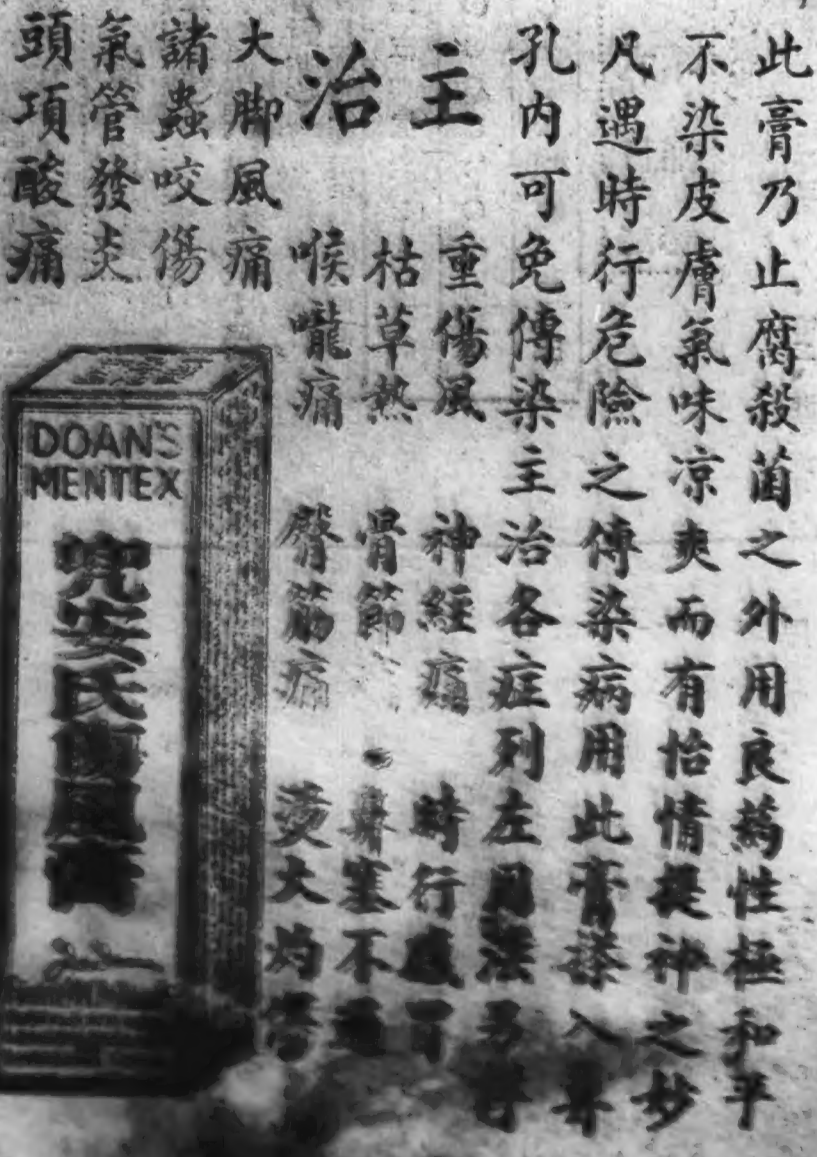 此膏乃止腐殺菌之外用良藥性極和平
不染皮膚氣味凉爽而有怡情提神之妙
凡遇時行危險之傳染病用此膏搽入鼻
孔內可免傳染主治各症列左用法另詳
主治
重傷風
神經痛
時行感冒
枯草熱
骨節
鼻塞不通
喉嚨痛
臀筋痛
燙火灼傷
大脚風痛
諸蟲咬傷
氣管發炎
頭項酸痛
DOAN'S
MENTEX
兜安氏傷風膏